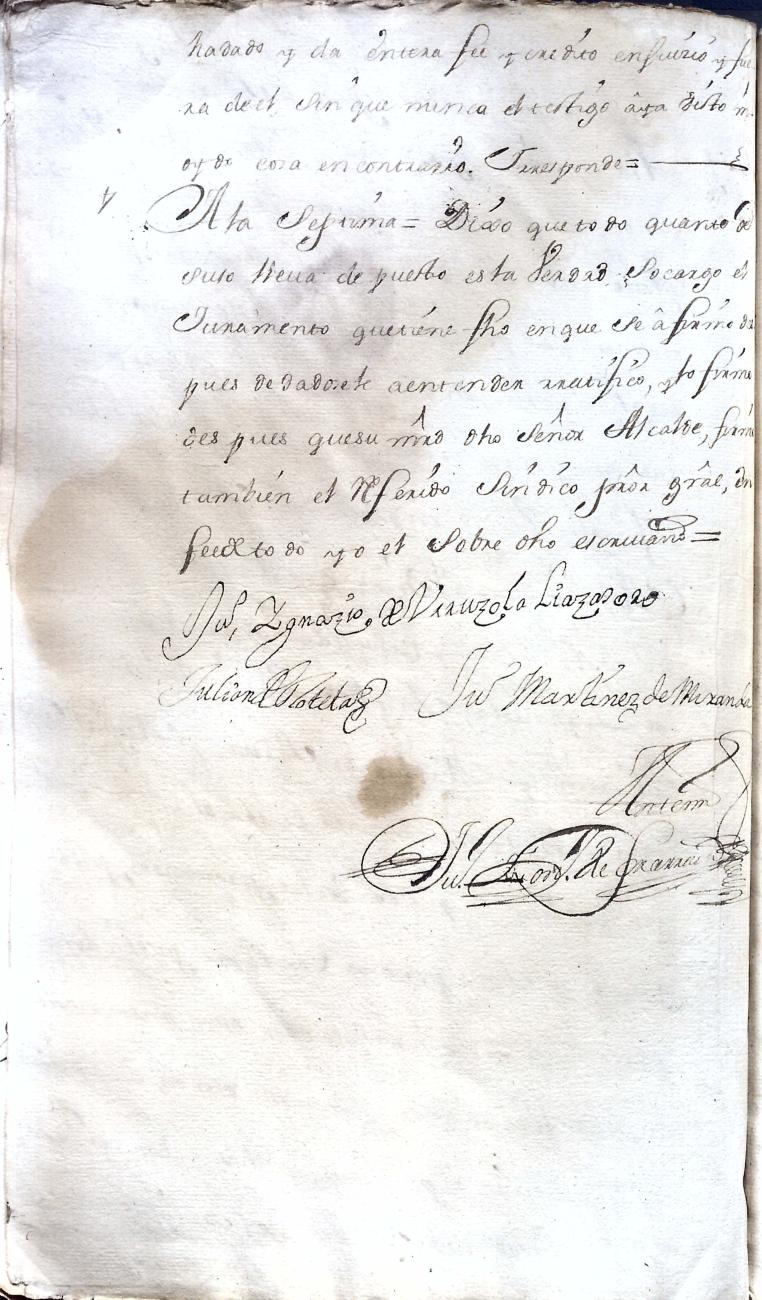 hadado y da entera fee y credito enJuicio y fue
ra de el, Sin que nunca el testigo âya visto n
oydo cosa en contrario. Irresponde=
7 A la Septima= Dixo que todo quanto de
suso lleva depuesto es la Verdad, Socargo el
Juramento que tiene fho en que Se âfirmo des
pues de dadosele aentender rratifico, y lo firmo
des pues quesu mrd dho Señor Alcalde, firmo
tambien el Rferido Sindico pror gral, en
feede todo yo el Sobre dho escrivano=
Ju, Ygnazio, de Veruzola Liazasoro
Julian de Roteta Ju Martinez de Miranda
Antemi
Ju.